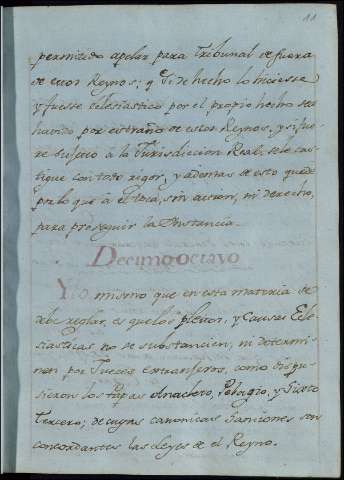 11
permitido apelar para Tribunal de fuera
de estos Reynos; y Si de hecho lo hiciesse
y fuesse eclesiastico por el propio hecho sea
havido por estraño de estos Reynos, y si fue
re Sujeto à la Jurisdiccion Real, se le cas
tigue con todo rigor, y ademas de esto quede
por lo que à èl toca, sin accion, ni derecho,
para proseguir la Instancia.
Decimo octavo
Y lo mismo que en esta materia se
debe reglar, es que los pleitos, y Causas Ecle
siasticas no se substancien, ni determi
nen por Jueces extrangeros, como dispu
sieron los Papas Anacleto, Pelagio, y Sixto
Tercero; de cuyas canonicas Sanciones son
concordantes las Leyes de el Reyno.